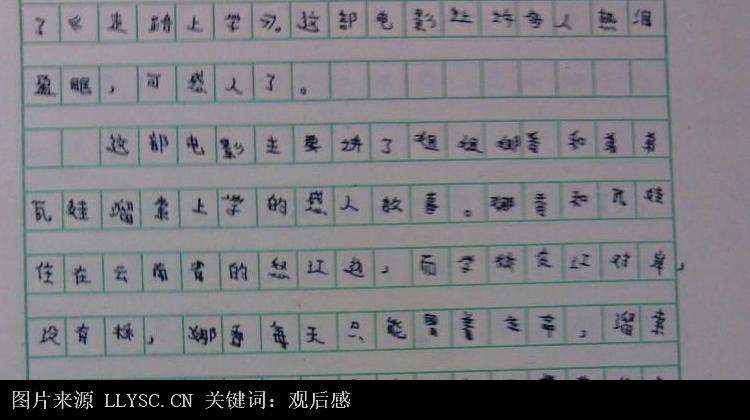 了 走路上学习。这部电影让许多人热泪
盈眶,可感人了。
这部电影主要讲了姐姐娜香和弟弟
瓦娃溜索上学的感人故事。娜香和瓦娃
住在云南省的怒江边,而学校在江对岸,
没有桥,娜香每天只能 溜索
图片来源 LLYSC.CN 关键词:观后感